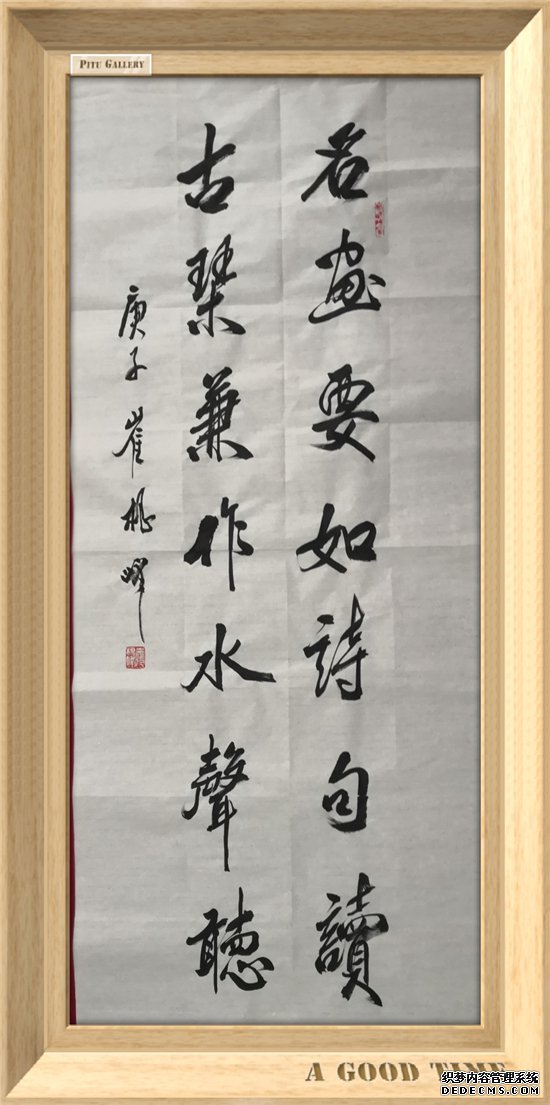 PITU GALLERY
名畫要如詩句讀
古琹兼作水聲聽
庚子 崔桃峰
A GOOD TIME
织梦内容管理系统
DEDECMS.COM